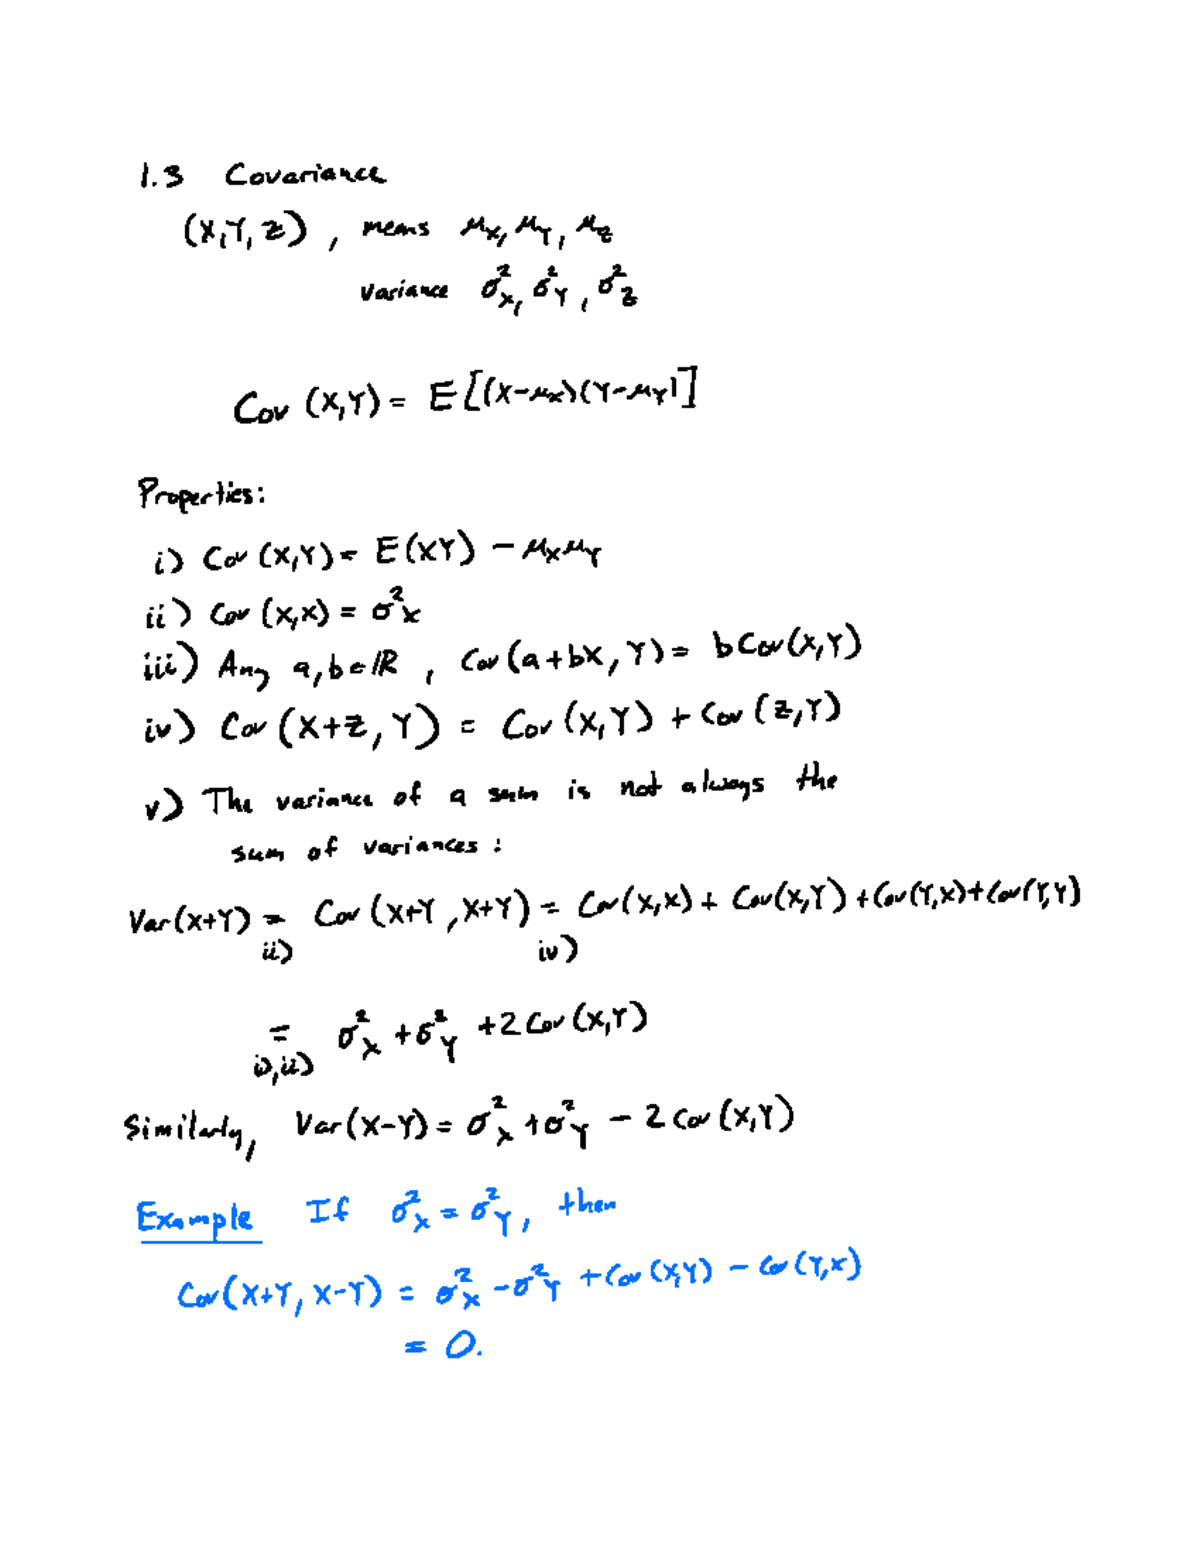 1.3 Covariance
(X,Y,Z), means μ_X, μ_Y, μ_Z
variance σ²_X, σ²_Y, σ²_Z
Cov (X,Y) = E[(X-μ_X)(Y-μ_Y)]
Properties:
i) Cov (X,Y) = E(XY) - μ_Xμ_Y
ii) Cov (X,X) = σ²_X
iii) Any a,b∈ℝ, Cov(a+bX, Y) = bCov(X,Y)
iv) Cov (X+Z, Y) = Cov (X,Y) + Cov (Z,Y)
v) The variance of a sum is not always the
sum of variances:
Var(X+Y) = Cov (X+Y, X+Y) = Cov(X,X) + Cov(X,Y) + Cov(Y,X) + Cov(Y,Y)
ii) iv)
= σ²_X + σ²_Y + 2Cov (X,Y)
i),ii)
Similarly, Var(X-Y) = σ²_X + σ²_Y - 2Cov (X,Y)
Example If σ²_X = σ²_Y, then
Cov(X+Y, X-Y) = σ²_X - σ²_Y + Cov (X,Y) - Cov (Y,X)
= 0.